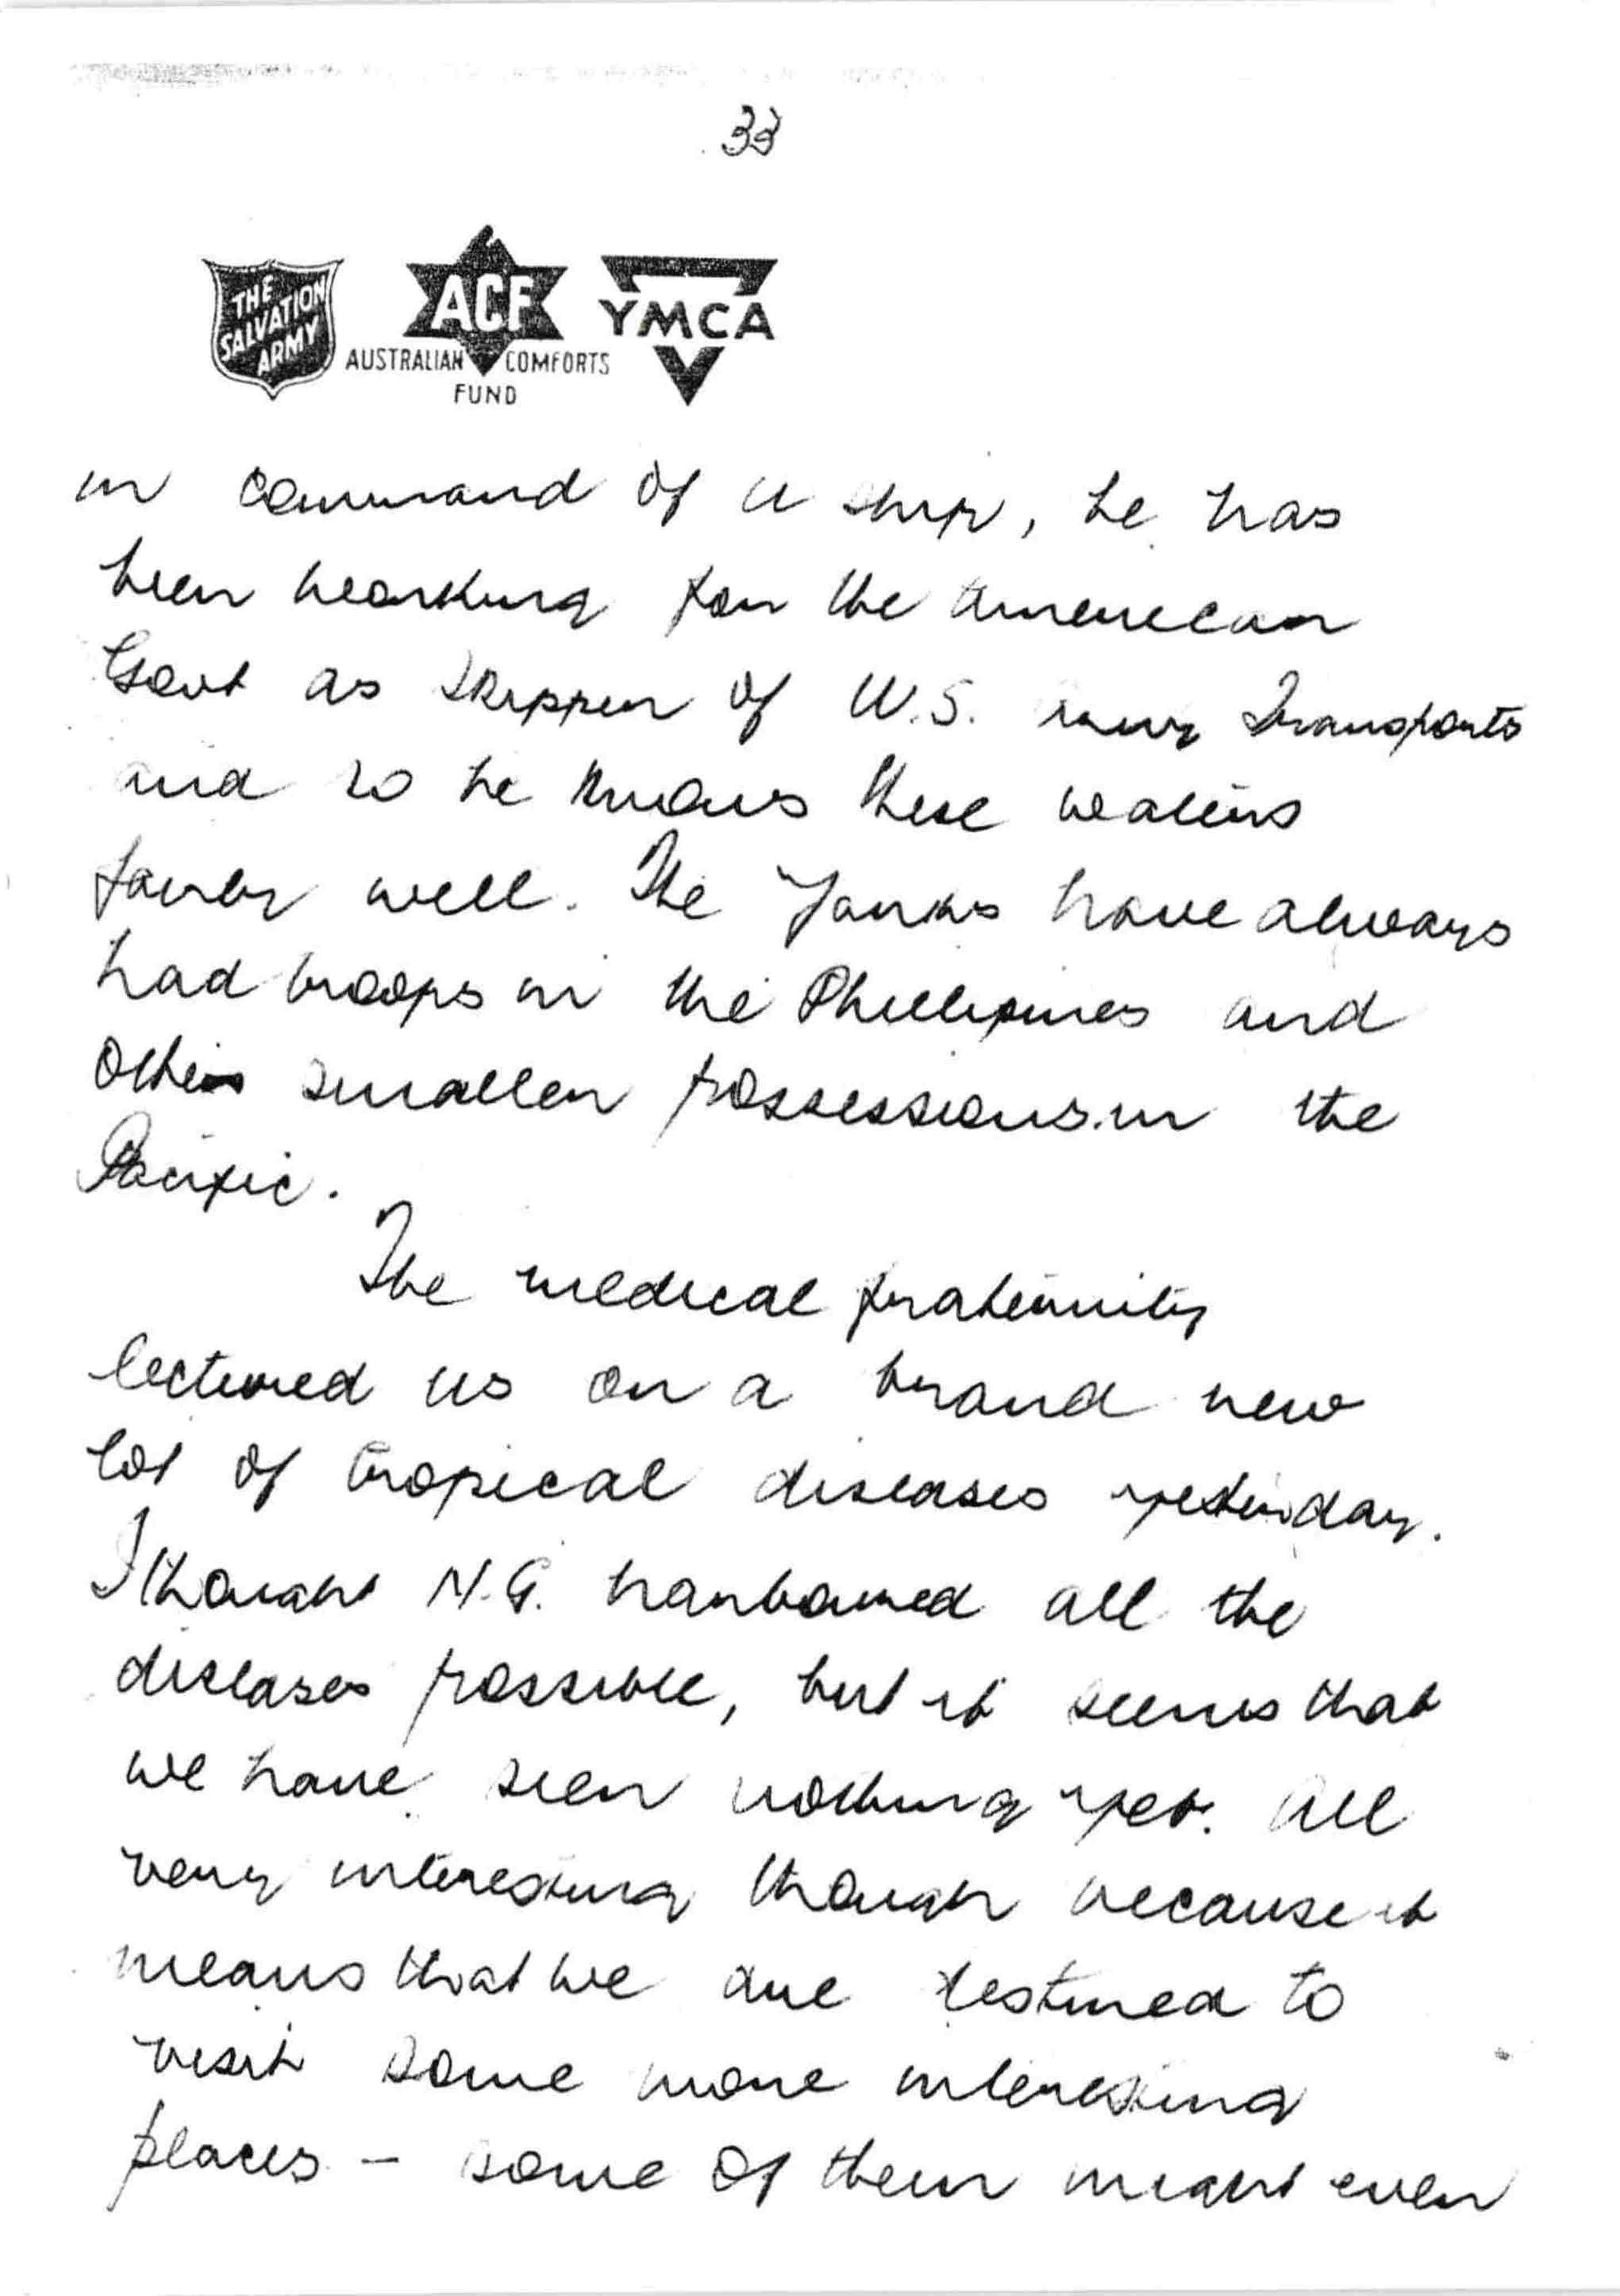 33
THE SALVATION ARMY
ACF
AUSTRALIAN COMFORTS
FUND
YMCA
in command of a ship, he has
been working for the American
Govt as skipper of U.S. Army Transports
and so he knows these waters
fairly well. The Yanks have always
had troops in the Phillipines and
other smaller possessions in the
Pacific.
The medical fraternity
lectured us on a brand new
lot of tropical diseases yesterday.
I thought N.G. harboured all the
diseases possible, but it seems that
we have seen nothing yet. All
very interesting though because it
means that we are destined to
visit some more interesting
places - some of them might even